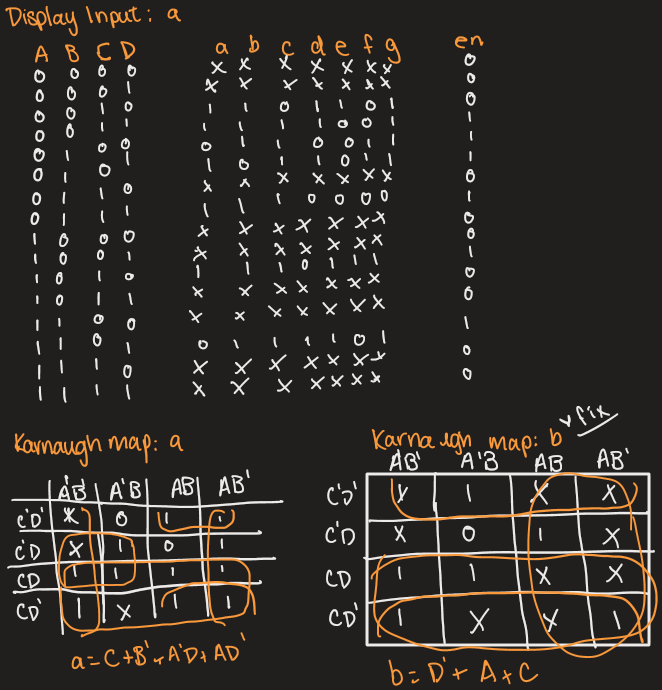 Display Input: a
A B C D a b c d e f g en
0 0 0 0 X X X X X X X 0
0 0 0 1 X X X X X X X 0
0 0 1 0 1 1 0 1 1 0 1 0
0 0 1 1 1 1 1 1 0 0 1 1
0 1 0 0 0 1 1 0 0 1 1 1
0 1 0 1 1 0 1 1 0 1 1 1
0 1 1 0 X X X X X X X 0
0 1 1 1 1 1 1 0 0 0 0 1
1 0 0 0 X X X X X X X 0
1 0 0 1 X X X X X X X 0
1 0 1 0 1 1 1 0 1 1 1 1
1 0 1 1 X X X X X X X 0
1 1 0 0 X X X X X X X 0
1 1 0 1 0 1 1 1 1 0 1 1
1 1 1 0 X X X X X X X 0
1 1 1 1 X X X X X X X 0
Karnaugh map: a
A'B' A'B AB AB'
C'D' X 0 1 1
C'D X 1 0 1
CD 1 1 1 1
CD' 1 X 1 1
a = C + B' + A'D + AD'
Karnaugh map: b
fix
AB' A'B AB AB'
C'D' X 1 X X
C'D X 0 1 X
CD 1 1 X X
CD' 1 X X 1
b = D' + A + C